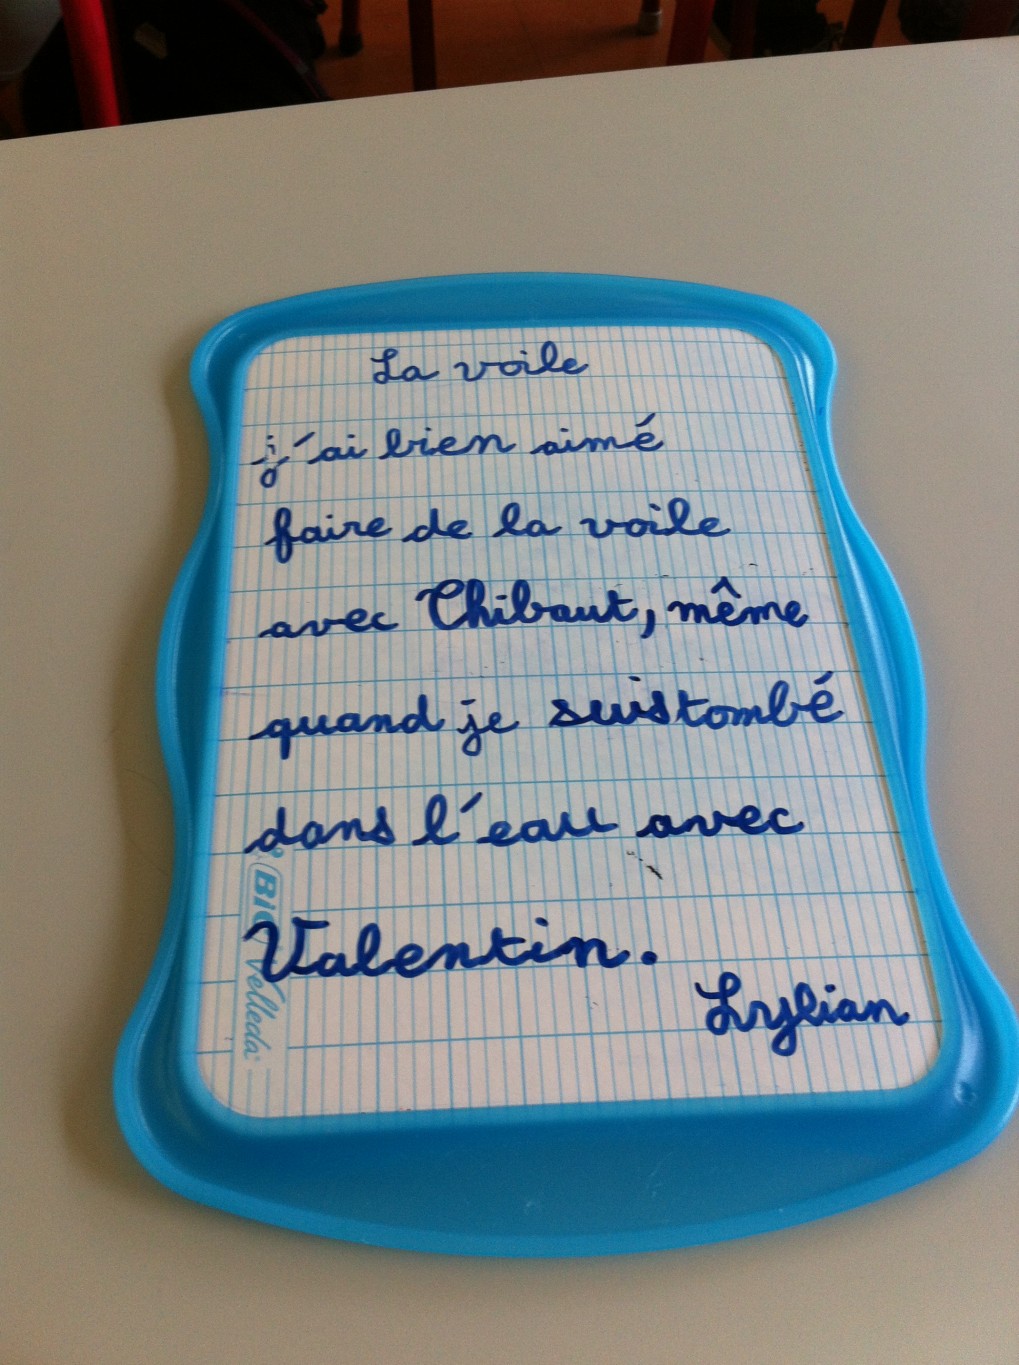 La voile
j'ai bien aimé
faire de la voile
avec Thibaut, même
quand je suis tombé
dans l'eau avec
Valentin.
Lylian
BIC Velleda